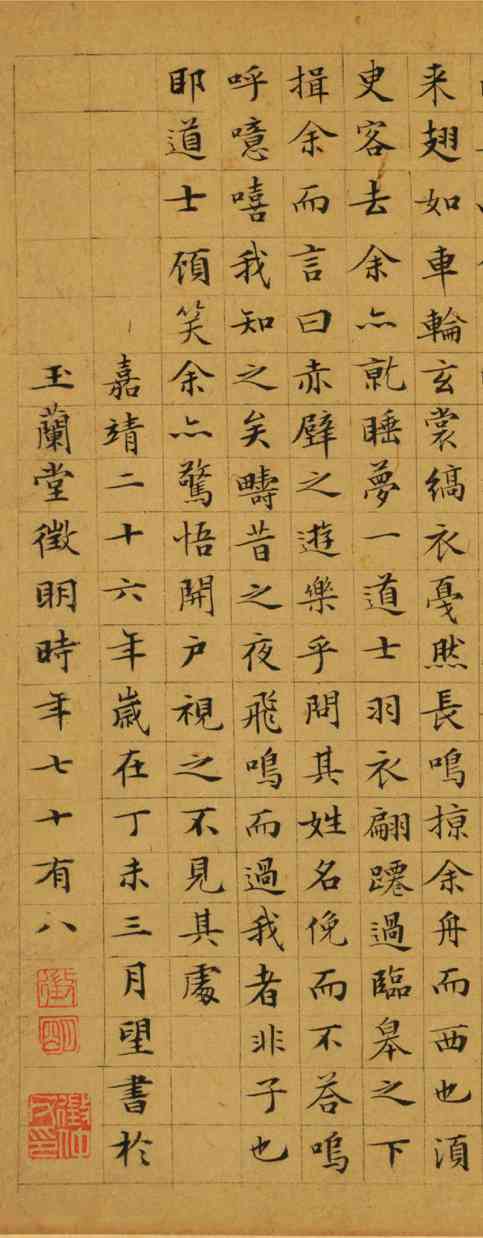 来翅如車輪玄裳縞衣戞然長鳴掠余舟而西也須
臾客去余亦就睡夢一道士羽衣翩躚過臨皋之下
揖余而言曰赤壁之遊樂乎問其姓名俛而不荅嗚
呼噫嘻我知之矣疇昔之夜飛鳴而過我者非子也
耶道士頋笑余亦驚悟開戶視之不見其處
嘉靖二十六年歲在丁未三月望書於
玉蘭堂徵明時年七十有八
徵
明